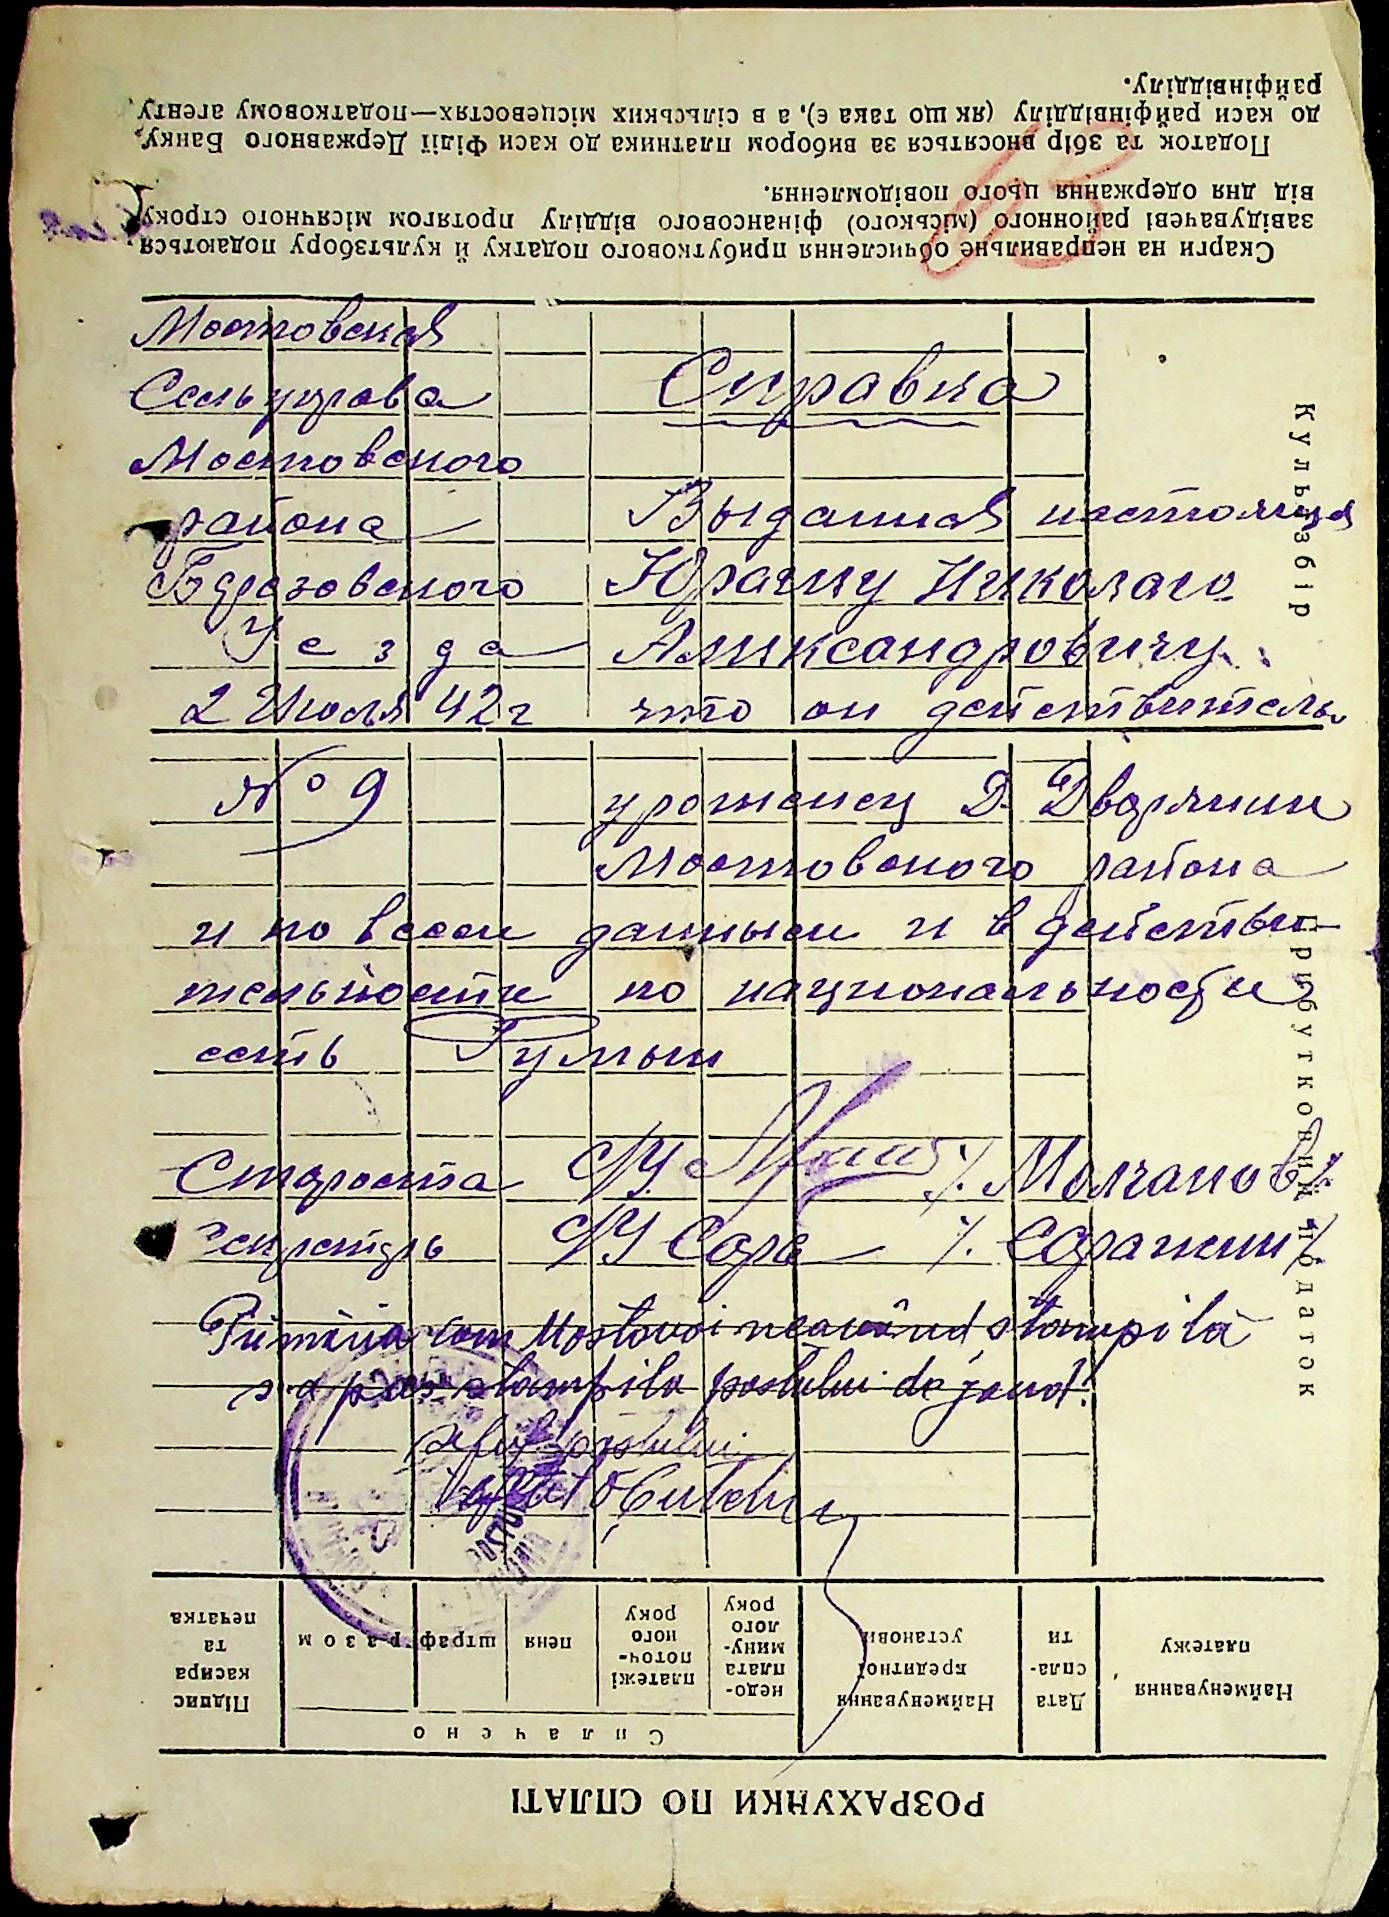 Мостовская
Сельуправа
Мостовского
района
Березовского
Уезда
2 Июля 42 г
№ 9
Справка
Выданная настоящая
Юрагину Николаю
Алиександровичу
что он действитель
уроженец Д. Дворянки
Мостовского района
и по всем данным и в действи-
тельности по национальности
есть Румын
Староста С/У /. Молчанов /.
Секретарь С/У Сара /. Саражин /.
Primăria com Mostovoi neavând stampilă
s-a pus stampila postului de jand.
Șeful postului
РОЗРАХУНКИ ПО СПЛАТІ
Найменування платежу
Дата спла-ти
Найменування кредитної установи
Сплачено
недо-плата мину-лого року
платежі поточ-ного року
пеня
штраф
разом
Підпис касира та печатка
Прибутковий податок
Культзбір
Скарги на неправильне обчислення прибуткового податку й культзбору подаються
завідувачеві районного (міського) фінансового відділу протягом місячного строку
від дня одержання цього повідомлення.
Податок та збір вносяться за вибором платника до каси Філії Державного Банку,
до каси райфінвідділу (як що така є), а в сільських місцевостях—податковому агенту
райфінвідділу.